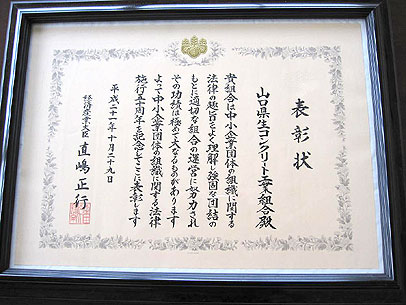 表彰状
山口県生コンクリート工業組合殿
貴組合は中小企業団体の組織に関する
法律の趣旨をよく理解し強固な団結の
もとに適切な組合の運営に努力され
その功績は極めて大なるものがあります
よって中小企業団体の組織に関する法律
施行五十周年を記念してここに表彰します
平成二十一年十月二十九日
経済産業大臣 直嶋正行